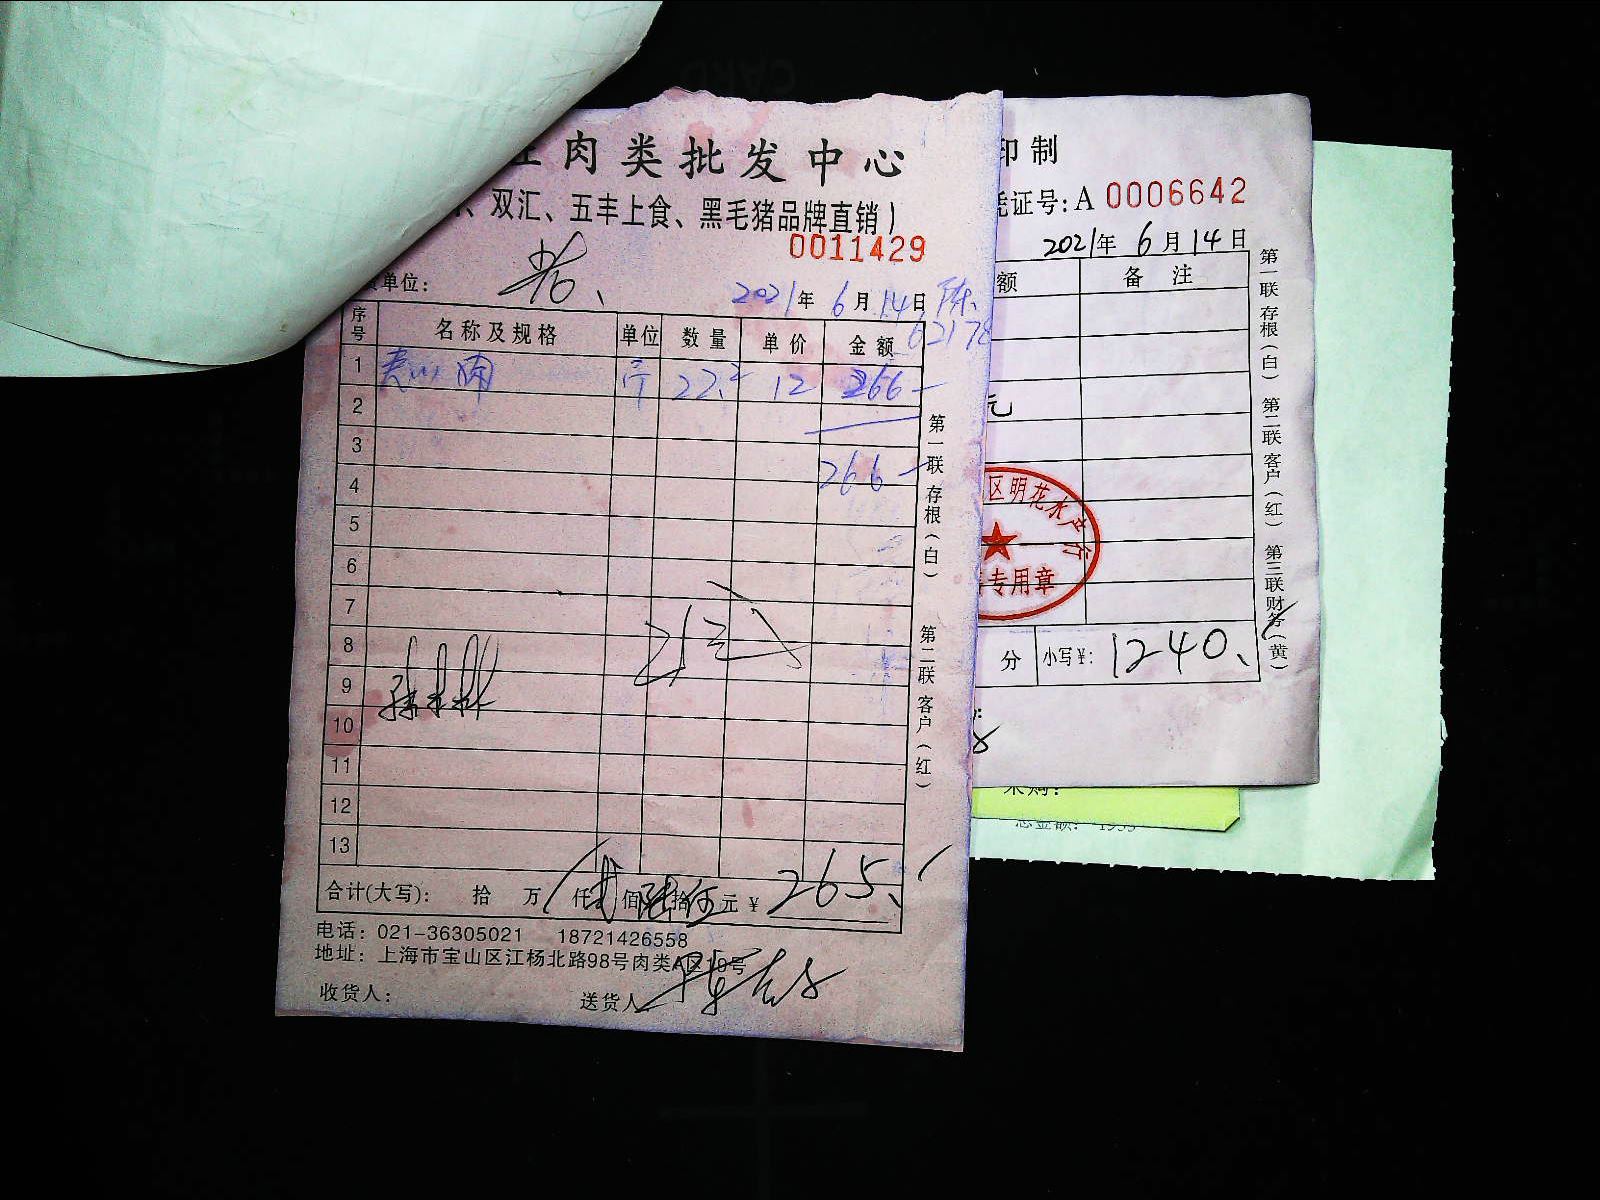 肉类批发中心
、双汇、五丰上食、黑毛猪品牌直销）
0011429
单位：
2021年 6月14日
陈
62178
序号 名称及规格 单位 数量 单价 金额
1 肉 斤 22.2 12 266-
2
3
266-
4
5
6
7
8
9
10
11
12
13
合计(大写)： 拾 万 仟 贰 佰 陆 拾 伍 元 ¥ 265、
电话：021-36305021 18721426558
地址：上海市宝山区江杨北路98号肉类A区19号
收货人： 送货人
第一联 存根（白） 第二联 客户（红）
印制
凭证号：A 0006642
2021年 6月14日
额 备 注
元
区明花水产行
专用章
分 小写¥： 1240、
第一联 存根（白） 第二联 客户（红） 第三联 财务（黄）
采购：
总金额： 1955